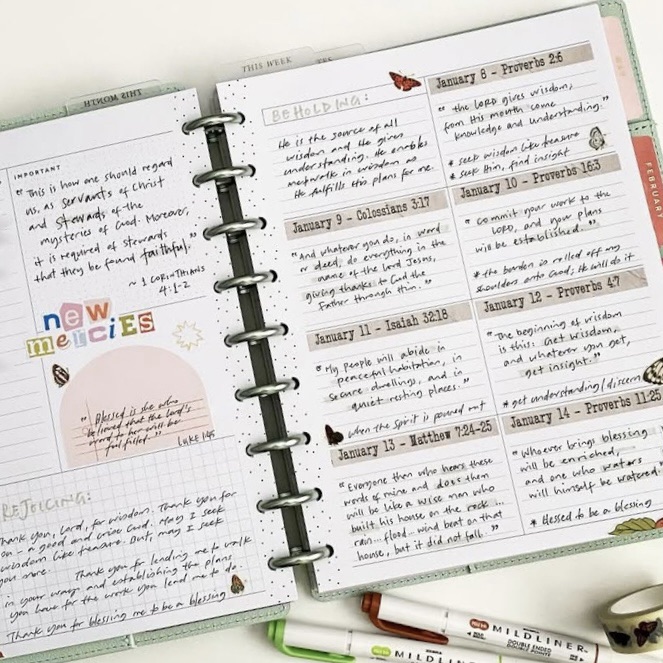 THIS MONTH
THIS WEEK
FEBRUARY
IMPORTANT
"This is how one should regard
us, as servants of Christ
and stewards of the
mysteries of God. Moreover,
it is required of stewards
that they be found faithful."
~ 1 CORINTHIANS
4:1-2
new
mercies
"Blessed is she who
believed that the Lord's
word to her will be
fulfilled."
LUKE 1:45
REJOICING:
Thank you, Lord, for wisdom. Thank you for
a good and wise God. May I seek
wisdom like treasure. But, may I seek
you more. Thank you for lending me to walk
in your ways and establishing the plans
you have for the work you lead me to do.
Thank you for blessing me to be a blessing
BEHOLDING:
He is the source of all
wisdom and He gives
understanding. He enables
me to walk in wisdom as
He fulfills His plans for me.
January 8 - Proverbs 2:6
"the LORD gives wisdom;
from His mouth come
knowledge and understanding."
* seek wisdom like treasure
* seek Him, find insight
January 9 - Colossians 3:17
"And whatever you do, in word
or deed, do everything in the
name of the Lord Jesus,
giving thanks to God the
Father through Him."
January 10 - Proverbs 16:3
"Commit your work to the
LORD, and your plans
will be established."
* the burden is rolled off my
shoulders onto God; He will do it
January 11 - Isaiah 32:18
"My people will abide in
peaceful habitation, in
secure dwellings, and in
quiet resting places."
when the Spirit is poured out
January 12 - Proverbs 4:7
"The beginning of wisdom
is this: Get wisdom,
and whatever you get,
get insight."
* get understanding/discern
January 13 - Matthew 7:24-25
"Everyone then who hears these
words of mine and does them
will be like a wise man who
built his house on the rock...
rain...flood...wind beat on that
house, but it did not fall."
January 14 - Proverbs 11:25
"Whoever brings blessing
will be enriched,
and one who waters
will himself be watered."
* blessed to be a blessing
MILDLINER
DOUBLE ENDED
MILDLINER